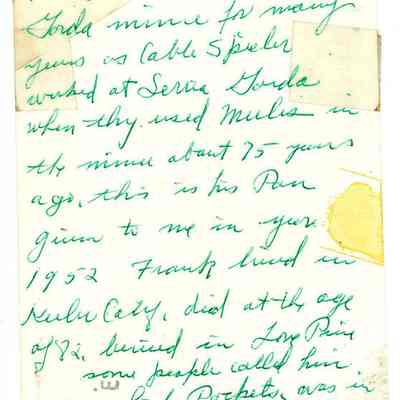 Gorda mine for many
years as Cable Spicler
worked at Serra Gorda
when thy used Mules in
the mine about 75 years
ago, this is his Pan
given to me in year
1952 Frank lived in
Calif, died at the age
of 82, buried in Lone Pine
some people called him
Pockets, was in